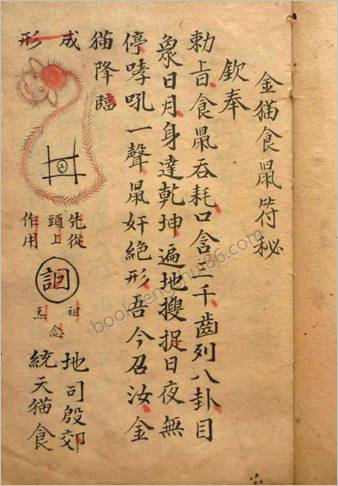 金猫食鼠符秘
欽奉
勅旨食鼠吞耗口含三千齒列八卦目
象日月身達乾坤遍地搜捉日夜無
停哮吼一聲鼠奸絶形吾今召汝金
猫降臨
成
形
先從
頭上
作用
祖
念
炁
地司殷郊
統天猫食
book.fengshui86.com